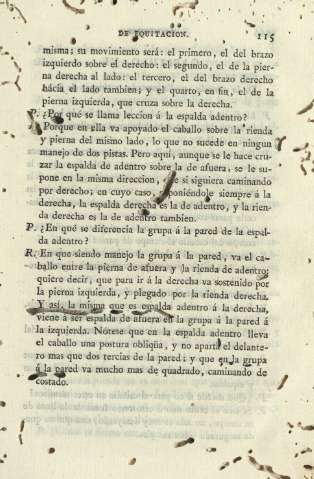 DE EQUITACION. 115
misma; su movimiento será: el primero, el del brazo
izquierdo sobre el derecho: el segundo, el de la pier-
na derecha al lado: el tercero, el del brazo derecho
hácia el lado tambien; y el quarto, en fin, el de la
pierna izquierda, que cruza sobre la derecha.
P. ¿Por qué se llama leccion á la espalda adentro?
Porque en ella va apoyado el caballo sobre la rienda
y pierna del mismo lado, lo que no sucede en ningun
manejo de dos pistas. Pero aquí, aunque se le hace cru-
zar la espalda de adentro sobre la de afuera, se le su-
pone en la misma direccion, que si siguiera caminando
por derecho; en cuyo caso, poniéndole siempre á la
derecha, la espalda derecha es la de adentro, y la rien-
da derecha es la de adentro tambien.
P. ¿En qué se diferencia la grupa á la pared de la espal-
da adentro?
R. En que siendo manejo la grupa á la pared, va el ca-
ballo entre la pierna de afuera y la rienda de adentro;
quiere decir, que para ir á la derecha va sostenido por
la pierna izquierda, y plegado por la rienda derecha.
Y así, la misma que es espalda adentro á la derecha,
viene á ser espalda de afuera en la grupa á la pared á
la izquierda. Nótese que en la espalda adentro lleva
el caballo una postura obliqüa, y no aparta el delante-
ro mas que dos tercias de la pared; y que en la grupa
á la pared va mucho mas de quadrado, caminando de
costado.